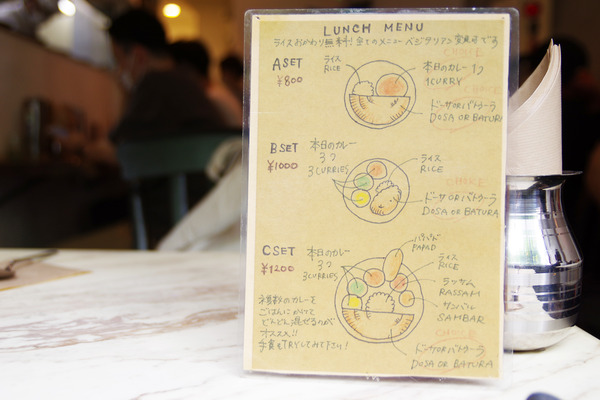 LUNCH MENU
ライスおかわり無料! 全てのメニューベジタリアン変更可です
A SET
¥800
ライス
RICE
CHOICE
本日のカレー 1つ
1 CURRY
CHOICE
ドーサ OR バトゥーラ
DOSA OR BATURA
B SET
¥1000
本日のカレー
3つ
3 CURRIES
ライス
RICE
CHOICE
ドーサ OR バトゥーラ
DOSA OR BATURA
C SET
¥1200
本日のカレー
3つ
3 CURRIES
パパド
PAPAD
ライス
RICE
ラッサム
RASSAM
サンバル
SAMBAR
CHOICE
ドーサ OR バトゥーラ
DOSA OR BATURA
複数のカレーを
ごはんにかけて
どんどん混ぜるのが
オススメ!!
手食もTRYしてみて下さい!